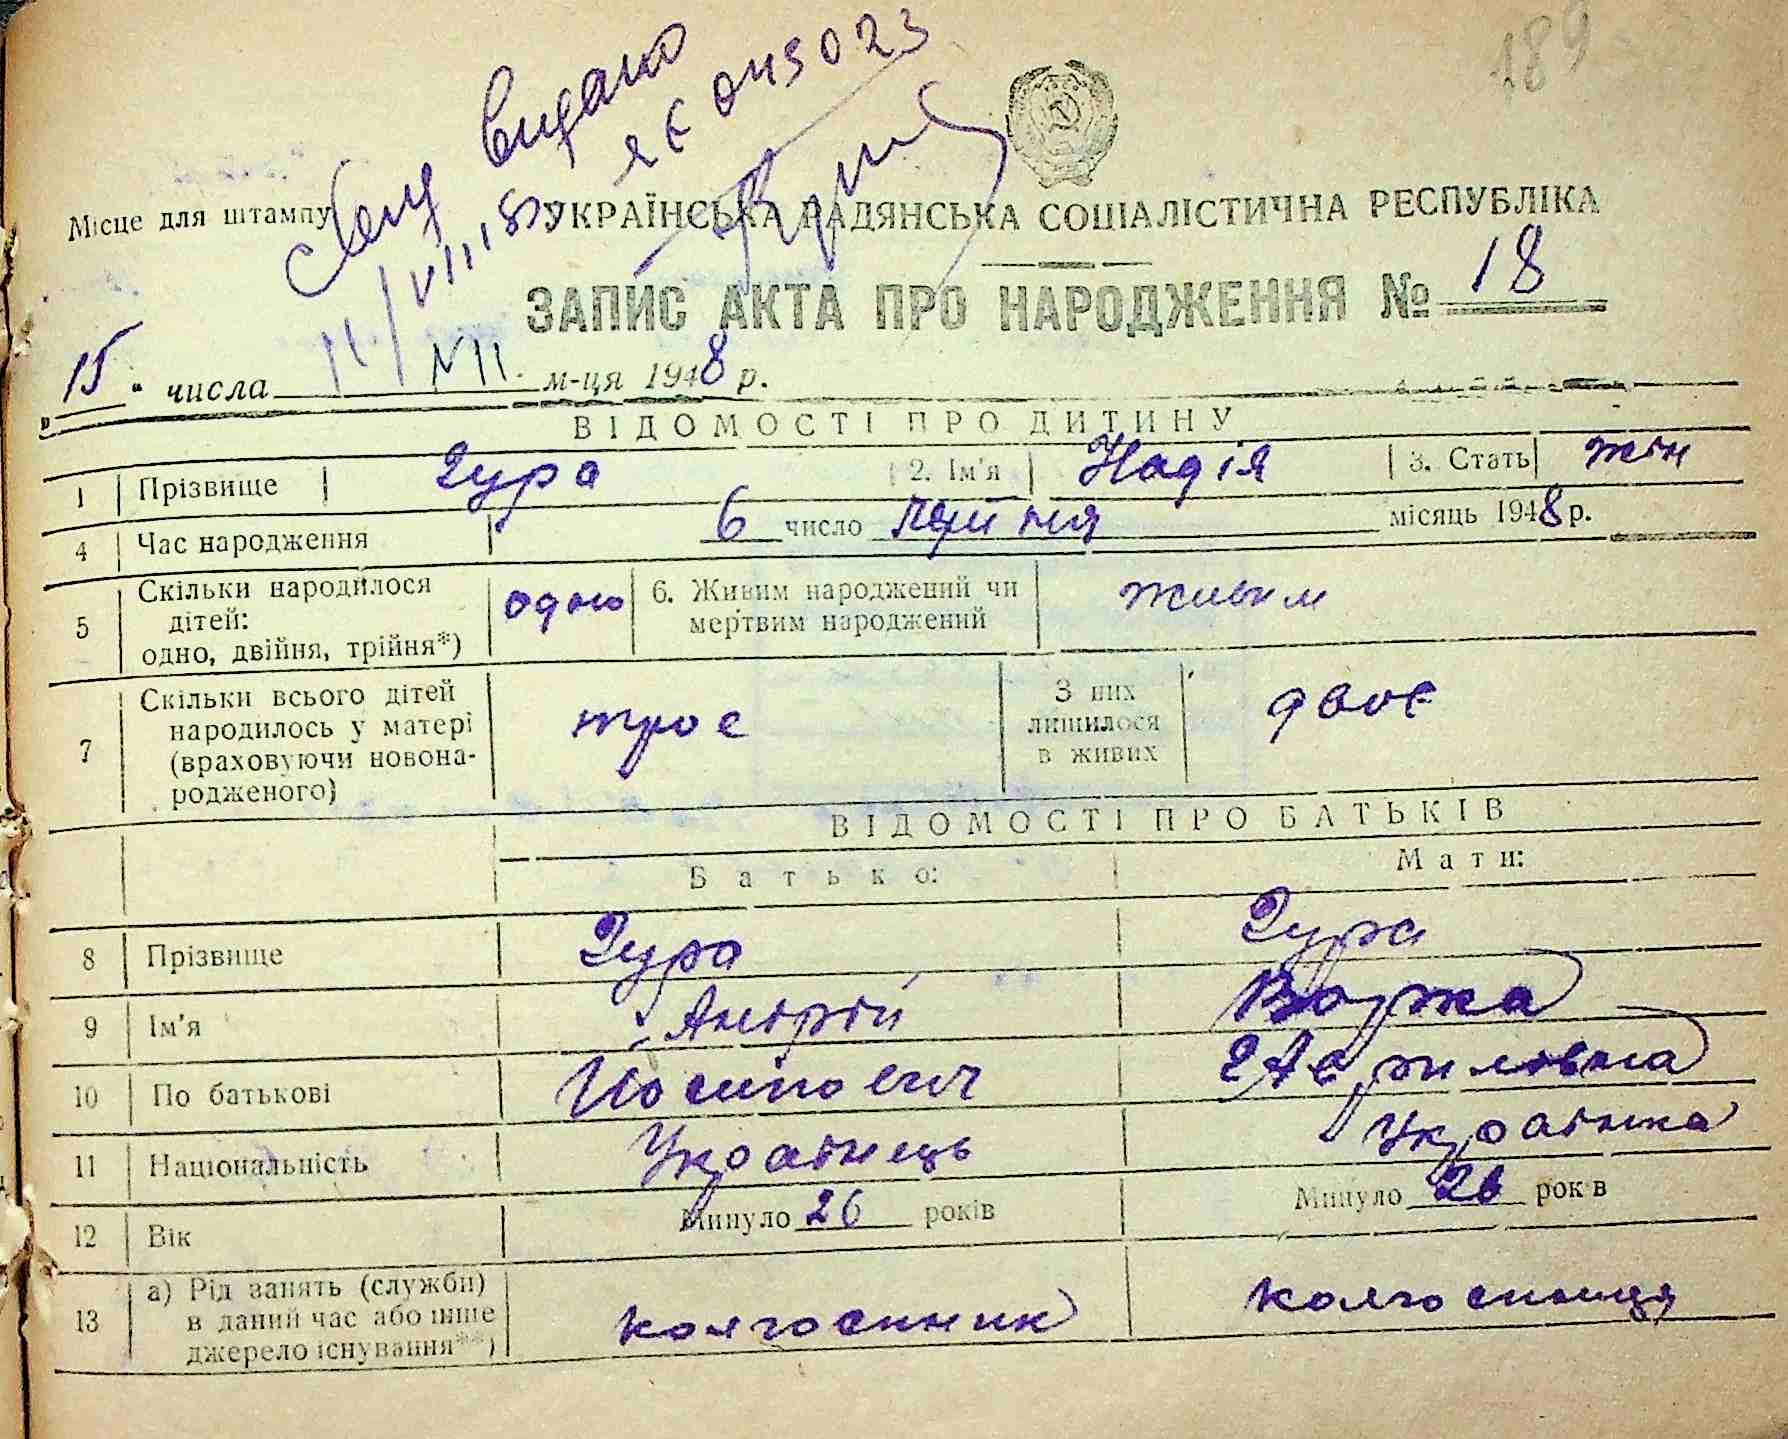 189
видано
ЯЄ 043023
Місце для штампу
УКРАЇНСЬКА РАДЯНСЬКА СОЦІАЛІСТИЧНА РЕСПУБЛІКА
ЗАПИС АКТА ПРО НАРОДЖЕННЯ № 18
„15“ числа VII. м-ця 1948 р.
ВІДОМОСТІ ПРО ДИТИНУ
1 Прізвище Зура 2. Ім'я Надія 3. Стать жін
4 Час народження 6 число липня місяць 1948 р.
5 Скільки народилося дітей: одно, двійня, трійня*) одно 6. Живим народжений чи мертвим народжений живим
7 Скільки всього дітей народилось у матері (враховуючи новонародженого) троє З них лишилося в живих двоє
ВІДОМОСТІ ПРО БАТЬКІВ
Батько: Мати:
8 Прізвище Зура Зура
9 Ім'я Андрій
10 По батькові Йосипович
11 Національність Українець Українка
12 Вік Минуло 26 років Минуло 26 років
13 а) Рід занять (служби) в даний час або інше джерело існування**) колгоспник колгоспниця